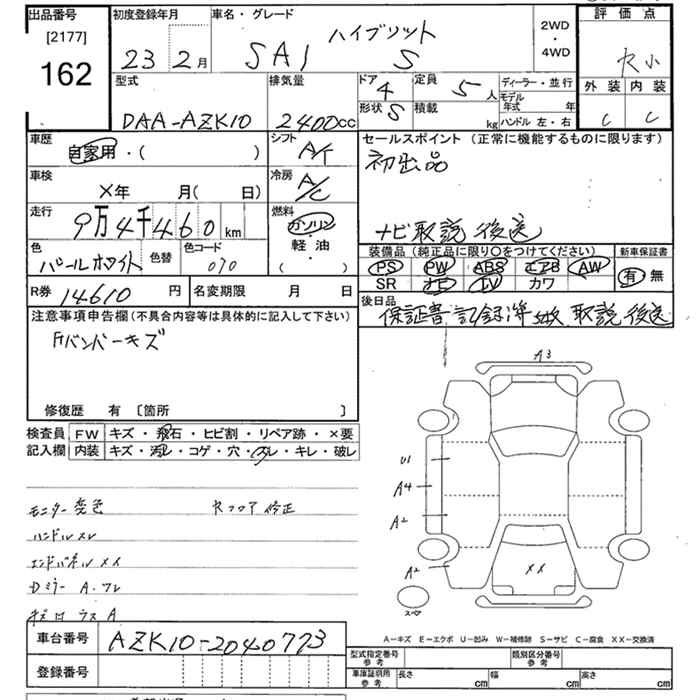 出品番号 初度登録年月 車名・グレード 評価点
[2177] ハイブリット 2WD
162 23 2月 SAI S ・ 大小
4WD
型式 排気量 ドア 4 定員 5人 ディーラー・並行 外装 内装
モデル年式 年
DAA-AZK10 2400cc 形状 S 積載 kg ハンドル 左・右 C C
車歴 シフト セールスポイント (正常に機能するものに限ります)
自家用・( ) A/T 初出品
車検 冷房
×年 月( 日) A/C
走行 燃料
9万4千460km ガソリン ナビ取説後送
・
色 色替 色コード 軽油 装備品(純正品に限り○をつけてください) 新車保証書
パールホワイト 070 ・ PS PW ABS エアB AW 有 無
( ) SR ナビ TV カワ
R券 14610円 名変期限 月 日 後日品
注意事項申告欄(不具合内容等は具体的に記入して下さい) 保証書 記録簿 取説 後送
Fバンパーキズ
修復歴 有 〔箇所 〕
検査員 FW キズ・飛石・ヒビ割・リペア跡・×要
記入欄 内装 キズ・汚レ・コゲ・穴・スレ・キレ・破レ
A3
U1
A4
A2
A2
XX
スペア
モニター変色 修正
ハンドルスレ
エンドパネルXX
Dミラー A.
A
A－キズ E－エクボ U－凹み W－補修跡 S－サビ C－腐食 XX－交換済
車台番号 AZK10-2040773
型式指定番号 参考 類別区分番号 参考
登録番号 車庫証明用 参考 長さ cm 幅 cm 高さ cm